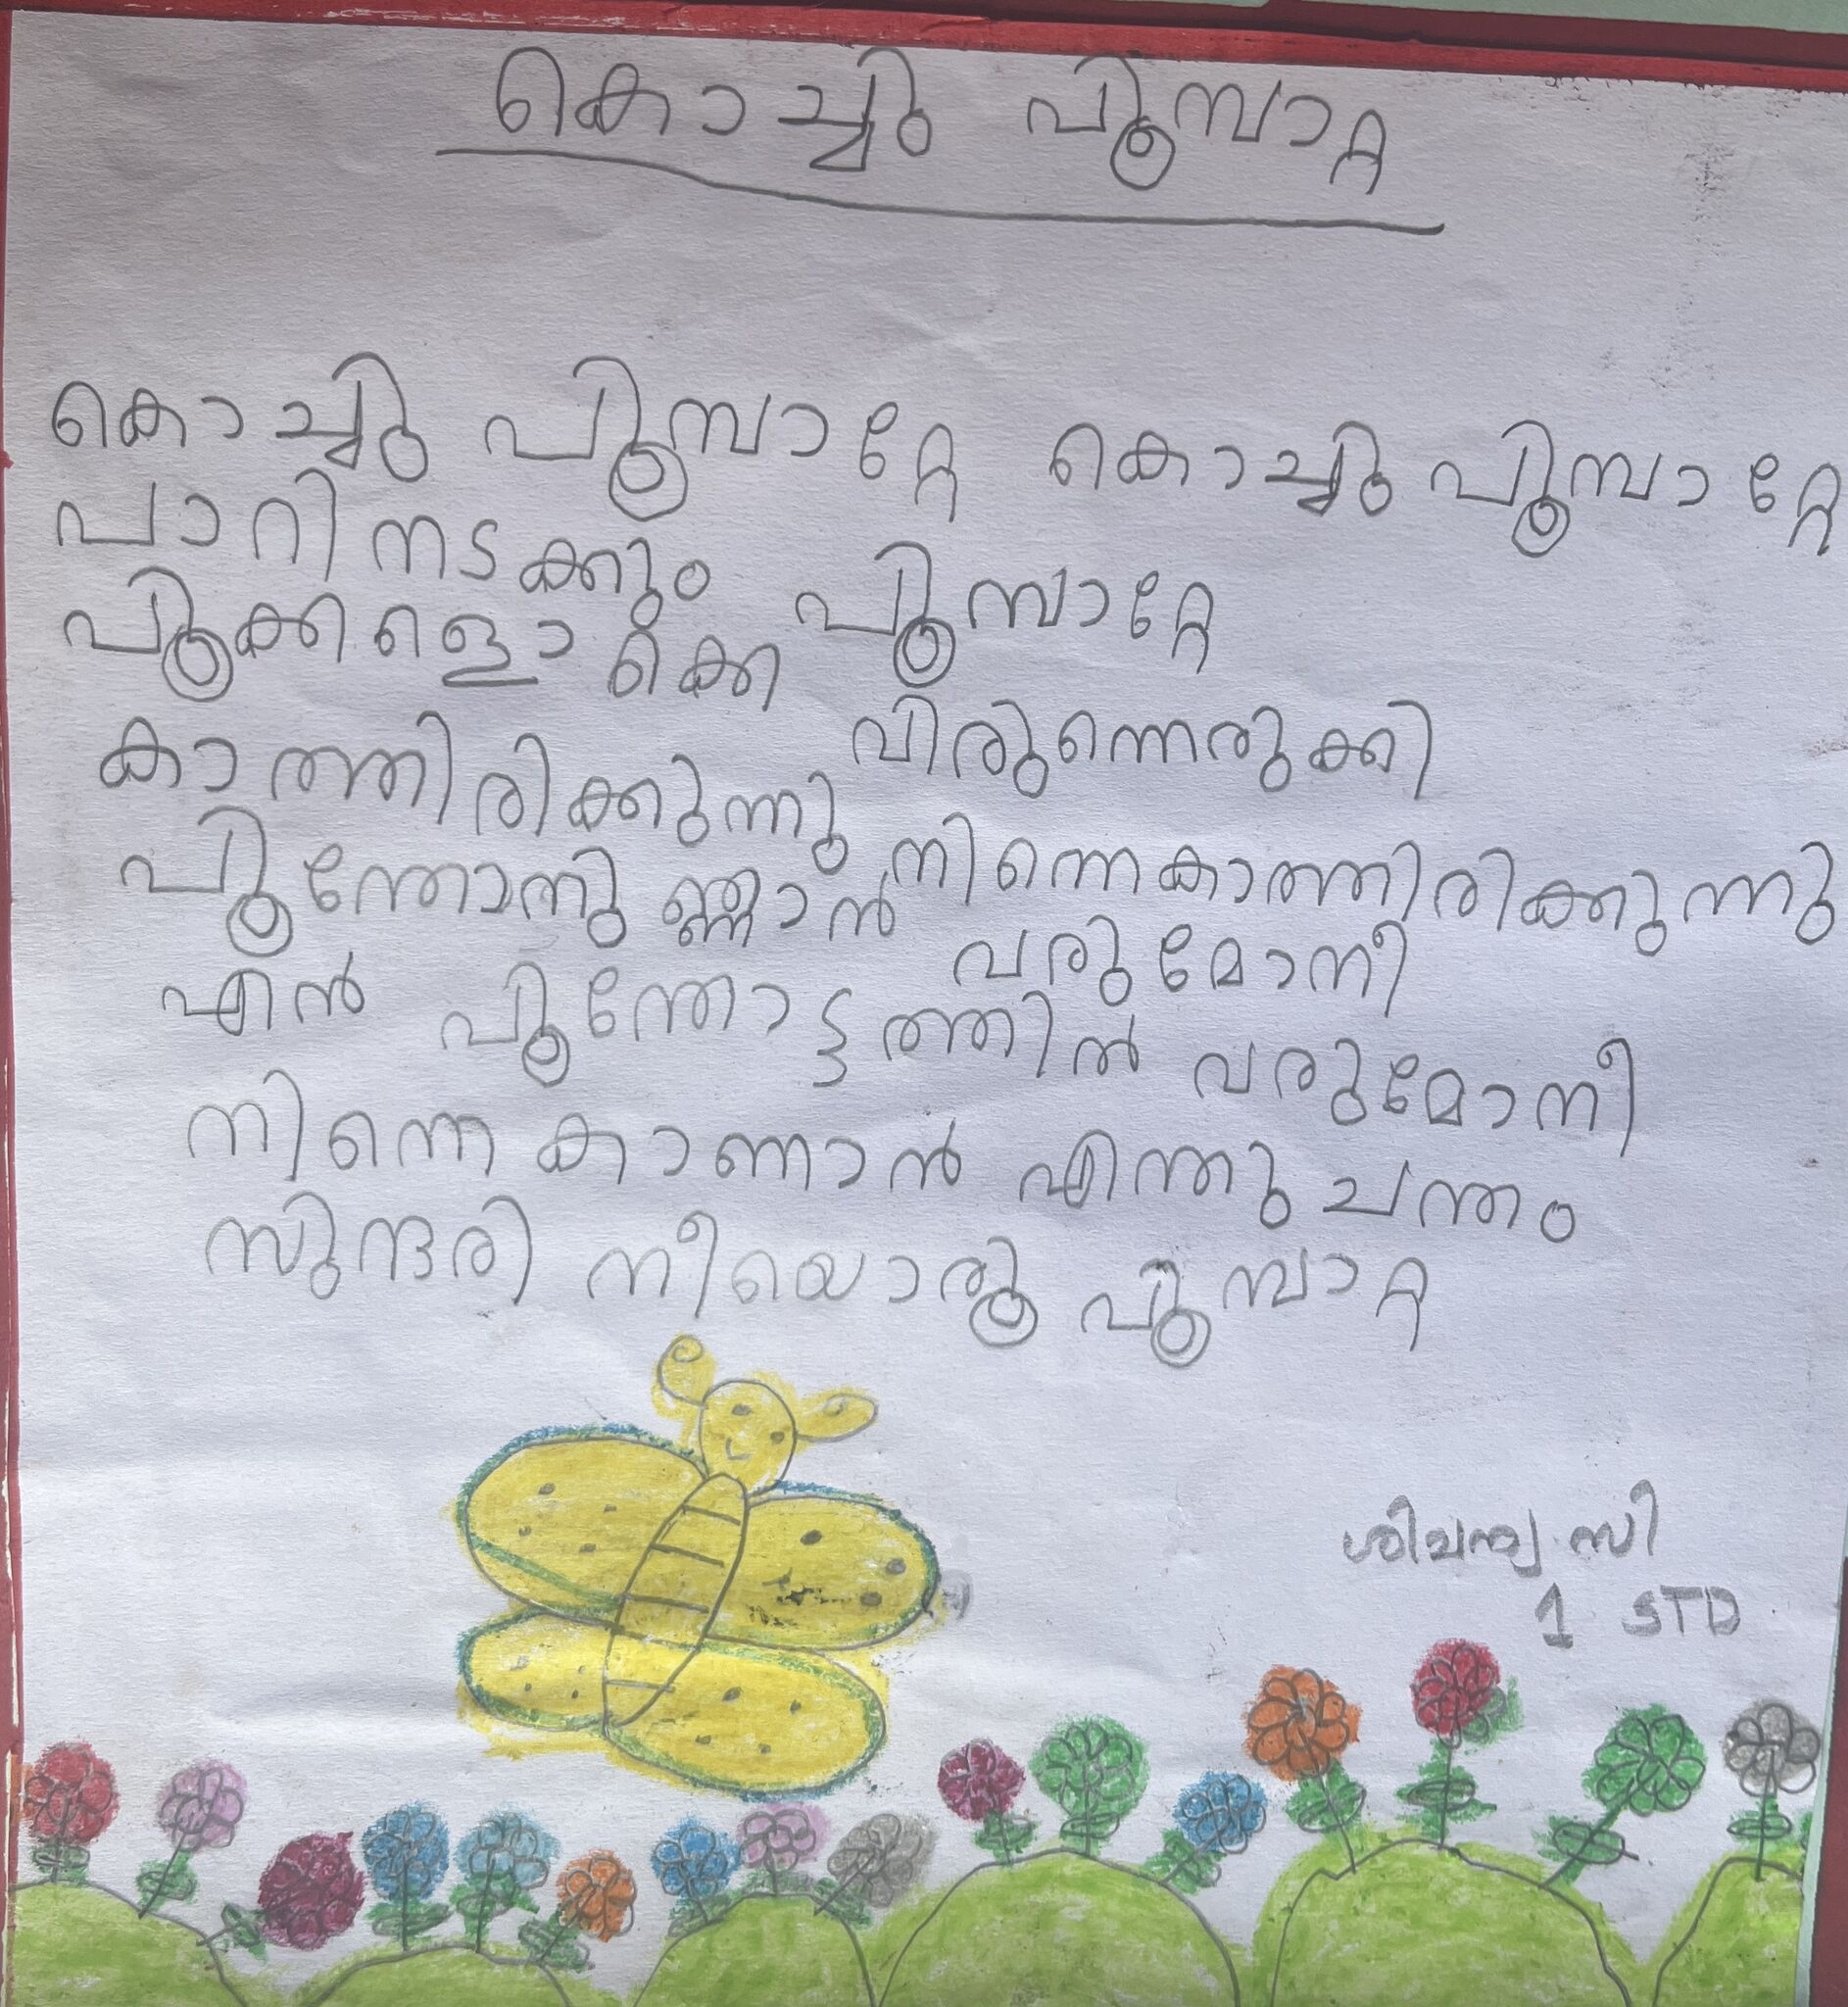 കൊച്ചു പൂമ്പാറ്റ
കൊച്ചു പൂമ്പാറ്റേ കൊച്ചു പൂമ്പാറ്റേ
പാറിനടക്കും പൂമ്പാറ്റേ
പൂക്കളൊക്കെ വിരുന്നെരുക്കി
കാത്തിരിക്കുന്നു നിന്നെകാത്തിരിക്കുന്നു
പൂന്തേനുണ്ണാൻ വരുമോനീ
എൻ പൂന്തോട്ടത്തിൽ വരുമോനീ
നിന്നെ കാണാൻ എന്തു ചന്തം
സുന്ദരി നീയൊരു പൂമ്പാറ്റ
സി
1 STD